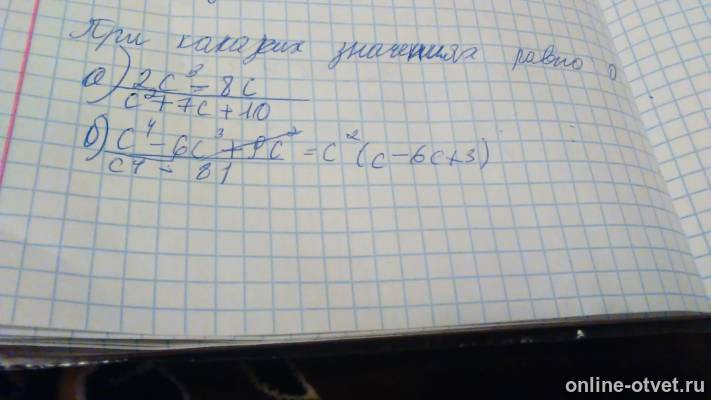 При каказих значениях равно 0
а) 2c³ - 8c
c² + 7c + 10
б) c⁴ - 6c³ + 9c² = c² (c - 6c + 3)
c⁴ - 81
online-otvet.ru